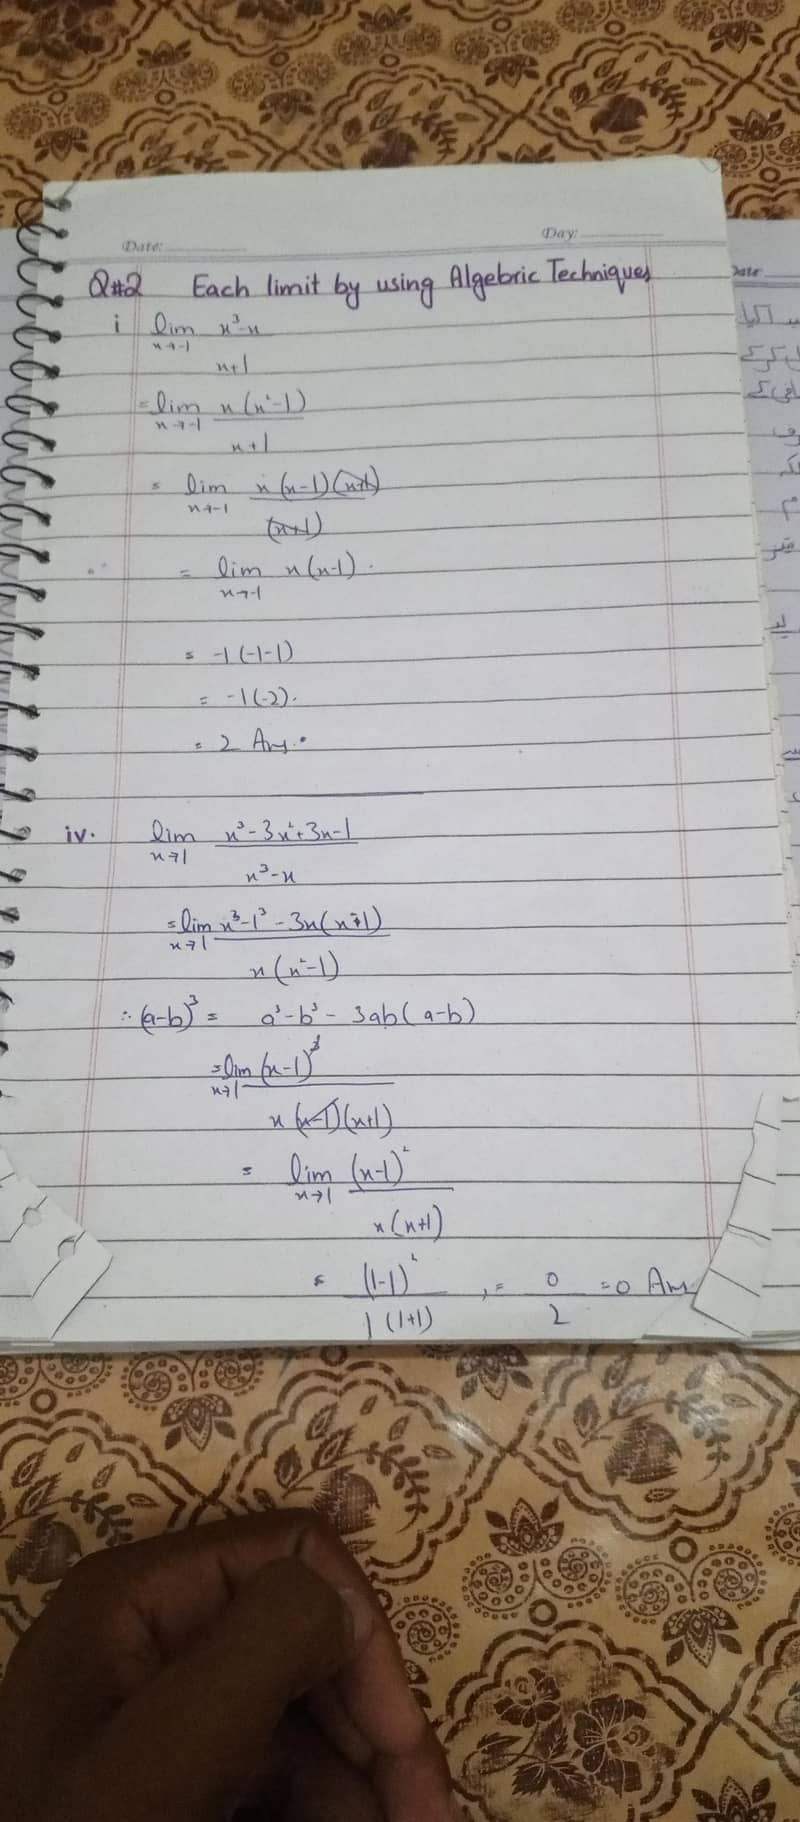 Date: Day:
Q#2 Each limit by using Algebric Techniques
i lim x³-x
x→-1
x+1
= lim x(x²-1)
x→-1
x+1
= lim x(x-1)(x+1)
x→-1
(x+1)
= lim x(x-1).
x→-1
= -1(-1-1)
= -1(-2).
= 2 Ans.
iv. lim x³-3x²+3x-1
x→1
x³-x
= lim x³-1³-3x(x-1)
x→1
x(x²-1)
∴ (a-b)³ = a³-b³-3ab(a-b)
= lim (x-1)³
x→1
x(x-1)(x+1)
= lim (x-1)²
x→1
x(x+1)
= (1-1)² , = 0 =0 Ans
1(1+1) 2
Date